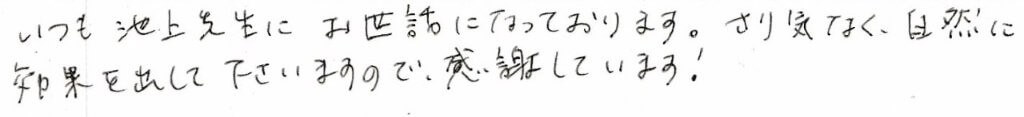 いつも 池上先生に お世話になっております。さり気なく、自然に
効果を出して下さいますので、感謝しています!